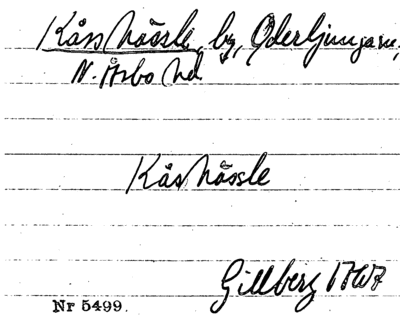 Kåss hässle, by, Öderljunga sn,
N. Åsbo hd
Kåshässle
Gillberg 1767
Nr 5499